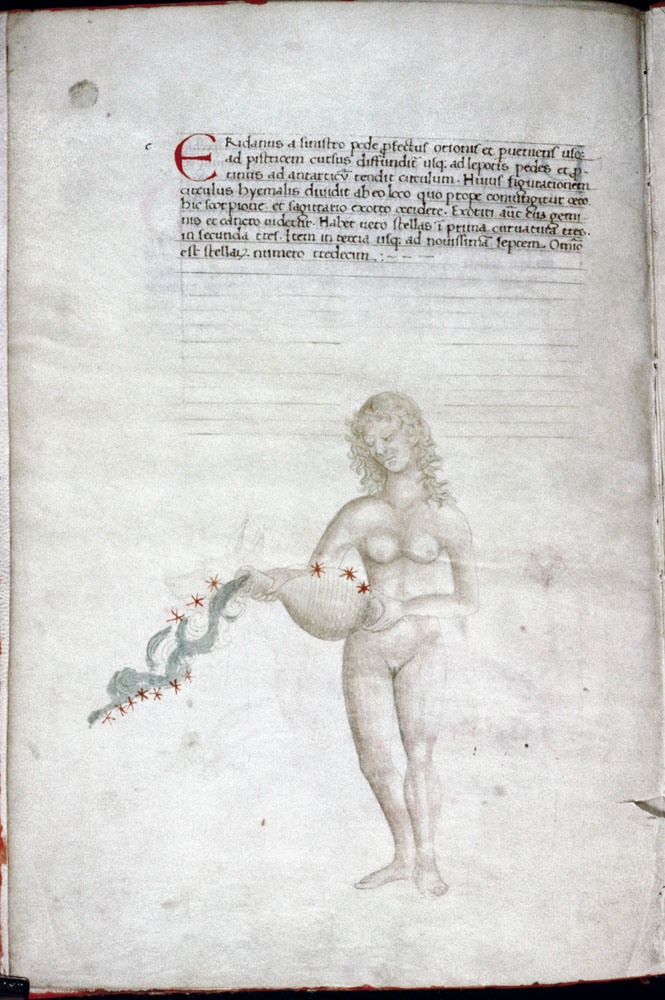 e
ERidanus a sinistro pede ꝓfectus orionis et pueniens usq;
ad pistricem cursus diffundit̄ usq; ad leporis pedes et ꝓ
tinus ad antarticū tendit circulum. Huius figurationem
circulus hyemalis diuidit ab eo loco quo prope coniungitur ceto.
hic scorpione et sagitario exorto occidere. Exoriri aūt cuȝ gemi
nis et cancro uidetur. Habet uero stellas ī prima curuatura tres.
in secunda tres. Item in tercia usq; ad nouissimā septem. Omīo
est stellaꝝ numero tredecim